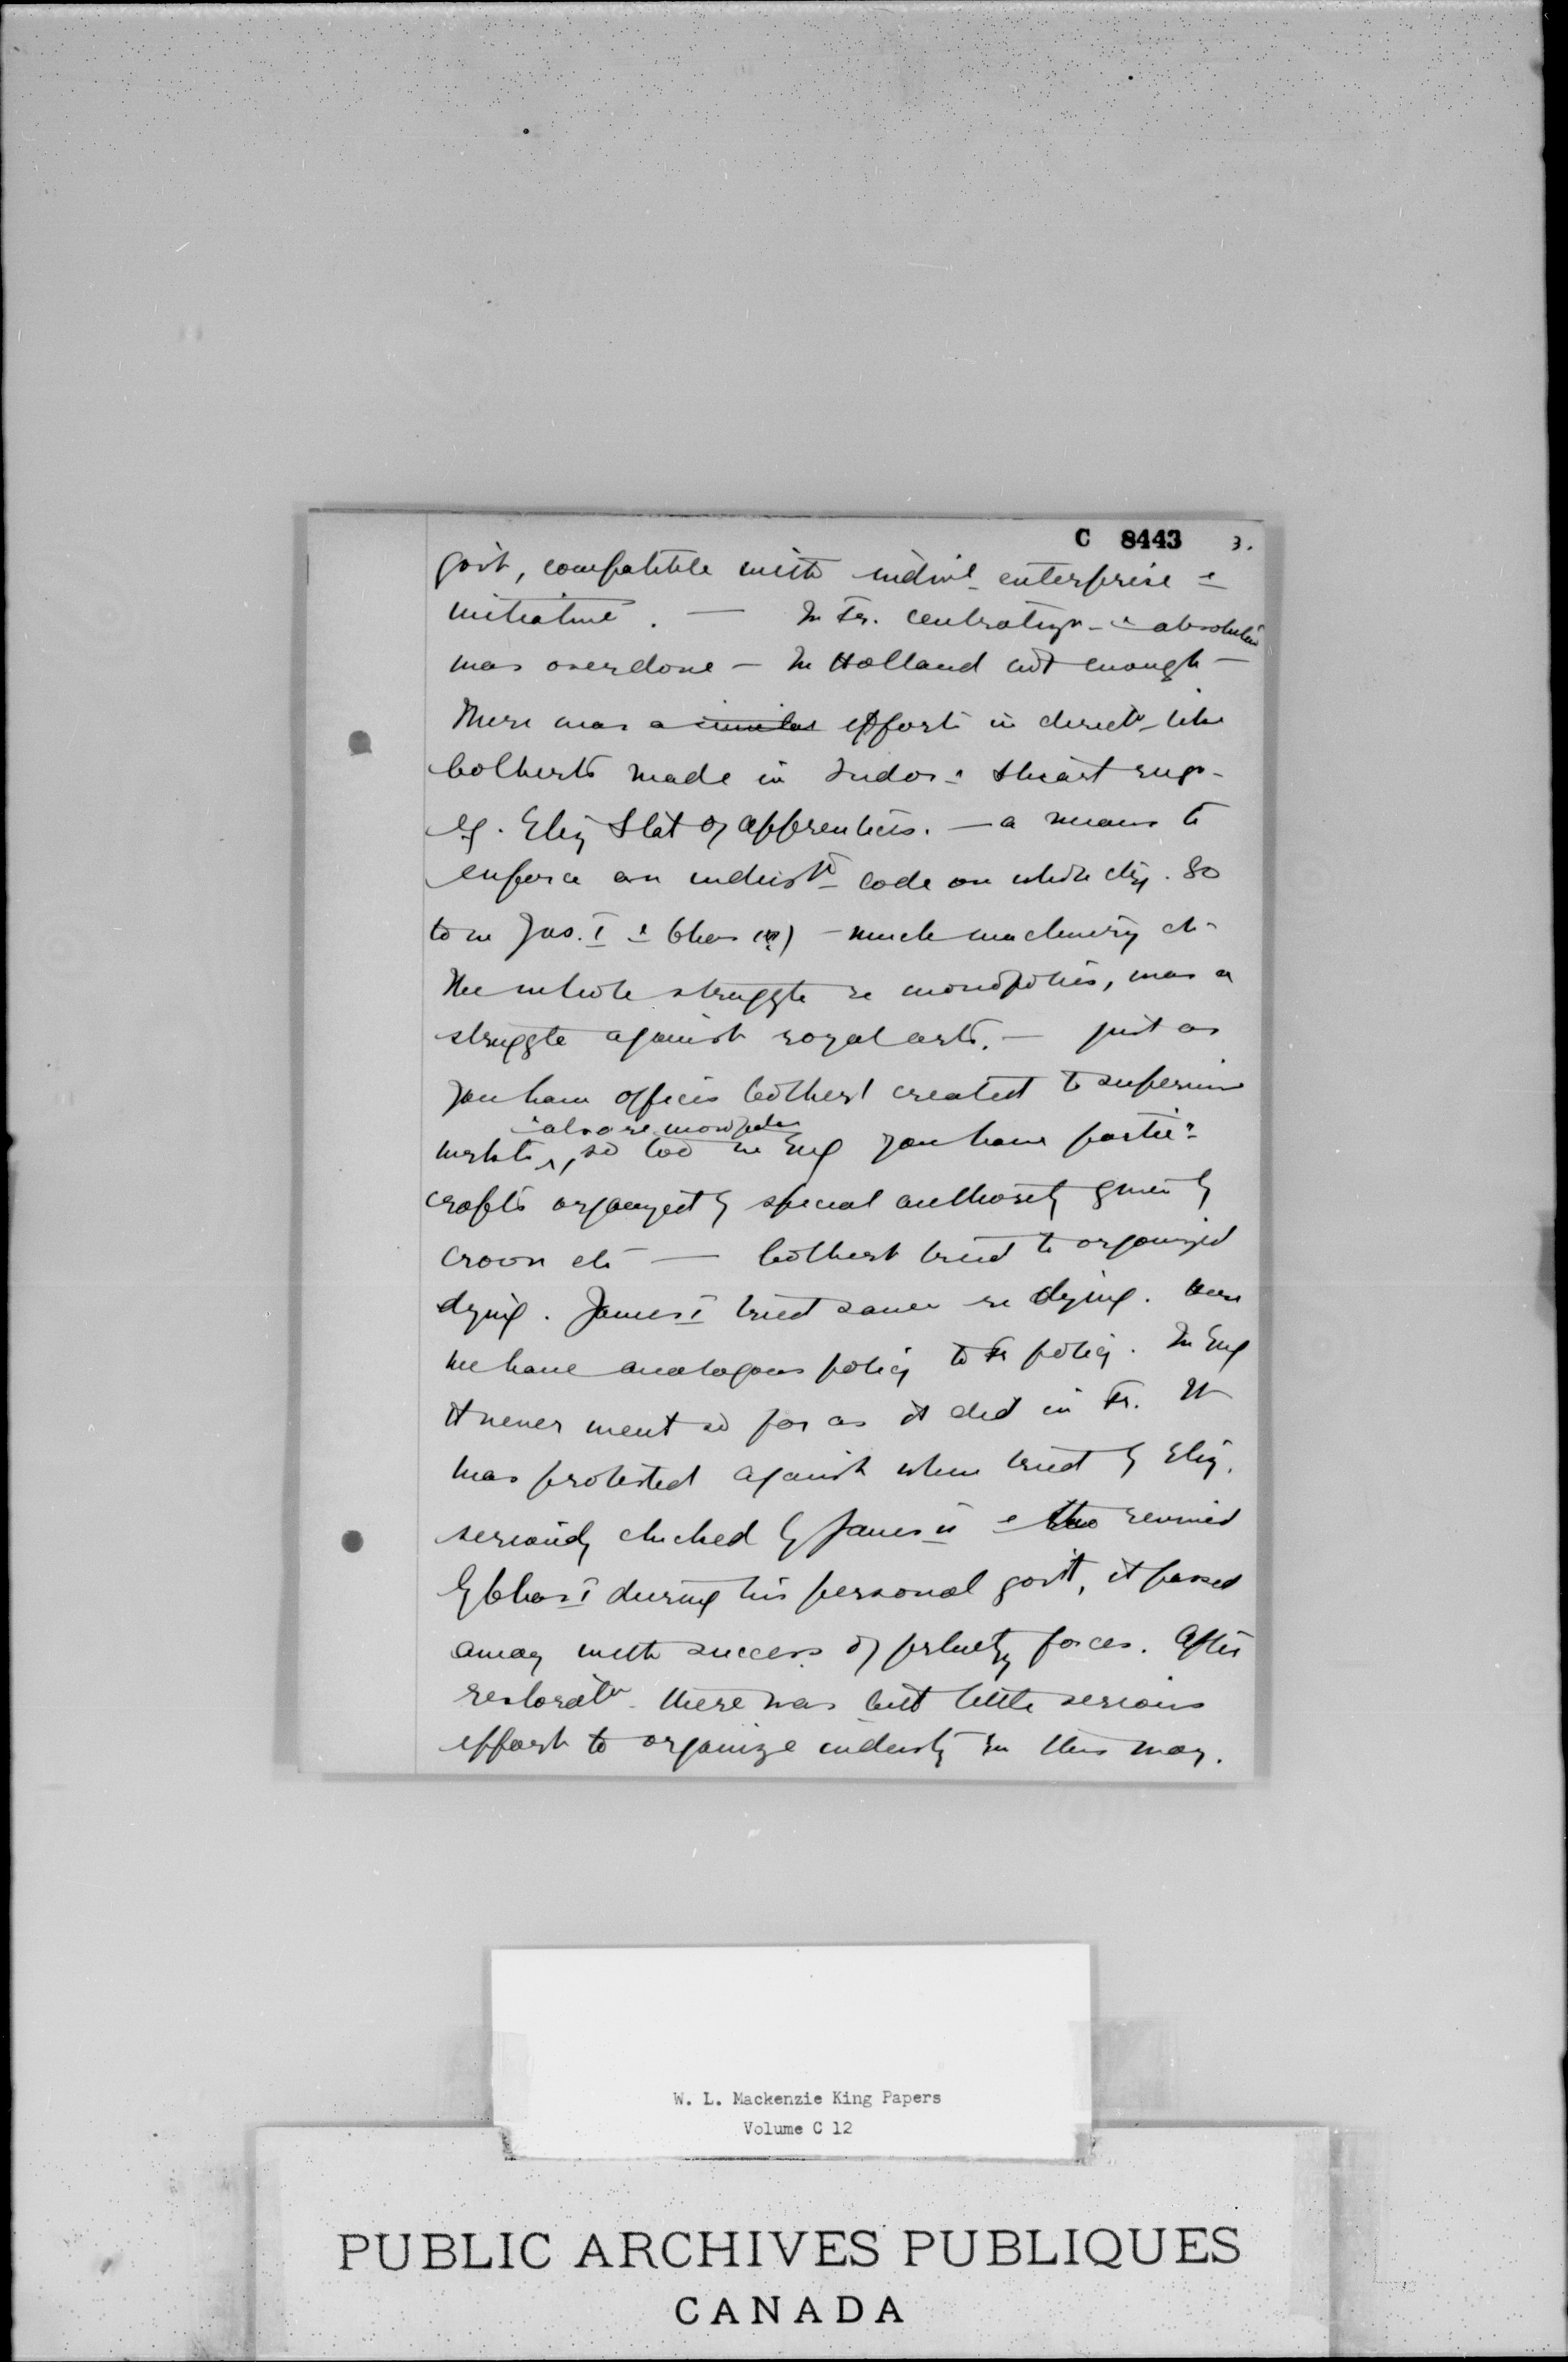 C 8443 3.
govt, compatible with indivl enterprise &
initiative. — In Fr. centralizn & absolutism
was overdone — In Holland not enough —
There was a similar effort in directn like
Colberts made in Tudor & Stuart
eg. Eliz Stat of apprentices. — a means to
enforce an industl code on whole cty. So
to in Jas. I & Chas (?) — much machinery etc
The whole struggle re monopolies, was a
struggle against royal — just as
you have offices Colbert created to supervise
& also re monopolies
so too in Eng you have partic
crafts organized by special authority given by
crown etc — Colbert tried to organized
dying. James I tried same re dying. Here
we have analogous policy to Fr policy. In Eng
it never went so far as it did in Fr. It
was protested against when tried by Eliz.
seriously checked by James & tho revived
by Chas I during his personal govt, it passed
away with success of forces. After
restoratn there was but little serious
effort to organize industry in this way.
W. L. Mackenzie King Papers
Volume C 12
PUBLIC ARCHIVES PUBLIQUES
CANADA